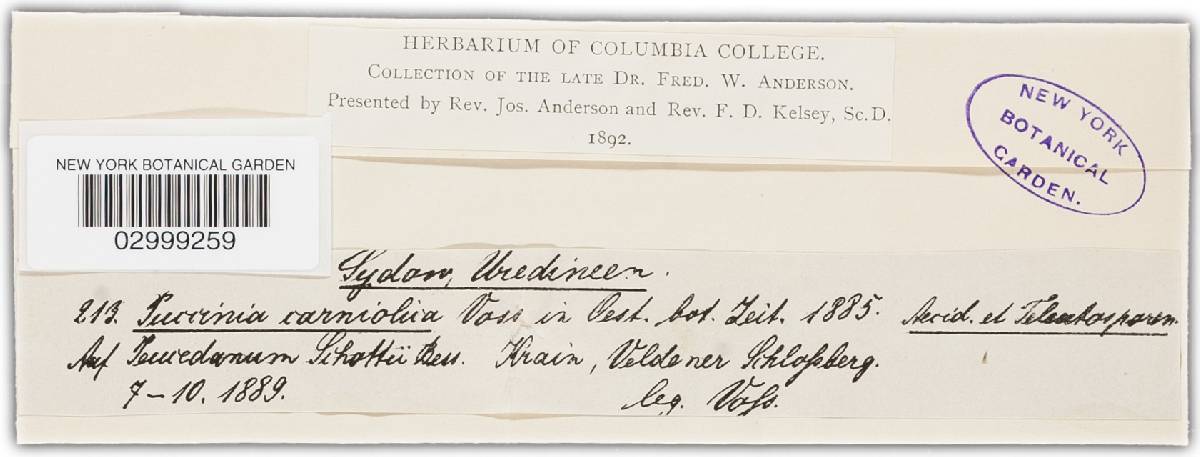 HERBARIUM OF COLUMBIA COLLEGE.
COLLECTION OF THE LATE DR. FRED. W. ANDERSON.
Presented by Rev. Jos. Anderson and Rev. F. D. Kelsey, Sc.D.
1892.
NEW YORK
BOTANICAL
GARDEN.
NEW YORK BOTANICAL GARDEN
02999259
Sydow, Uredineen.
213. Puccinia carniolica Voss in Oest. bot. Zeit. 1885. Aecid. et Teleutosporen.
Auf Peucedanum Schottii Bess. Krain, Veldener Schloßberg.
7-10. 1889. leg. Voß.